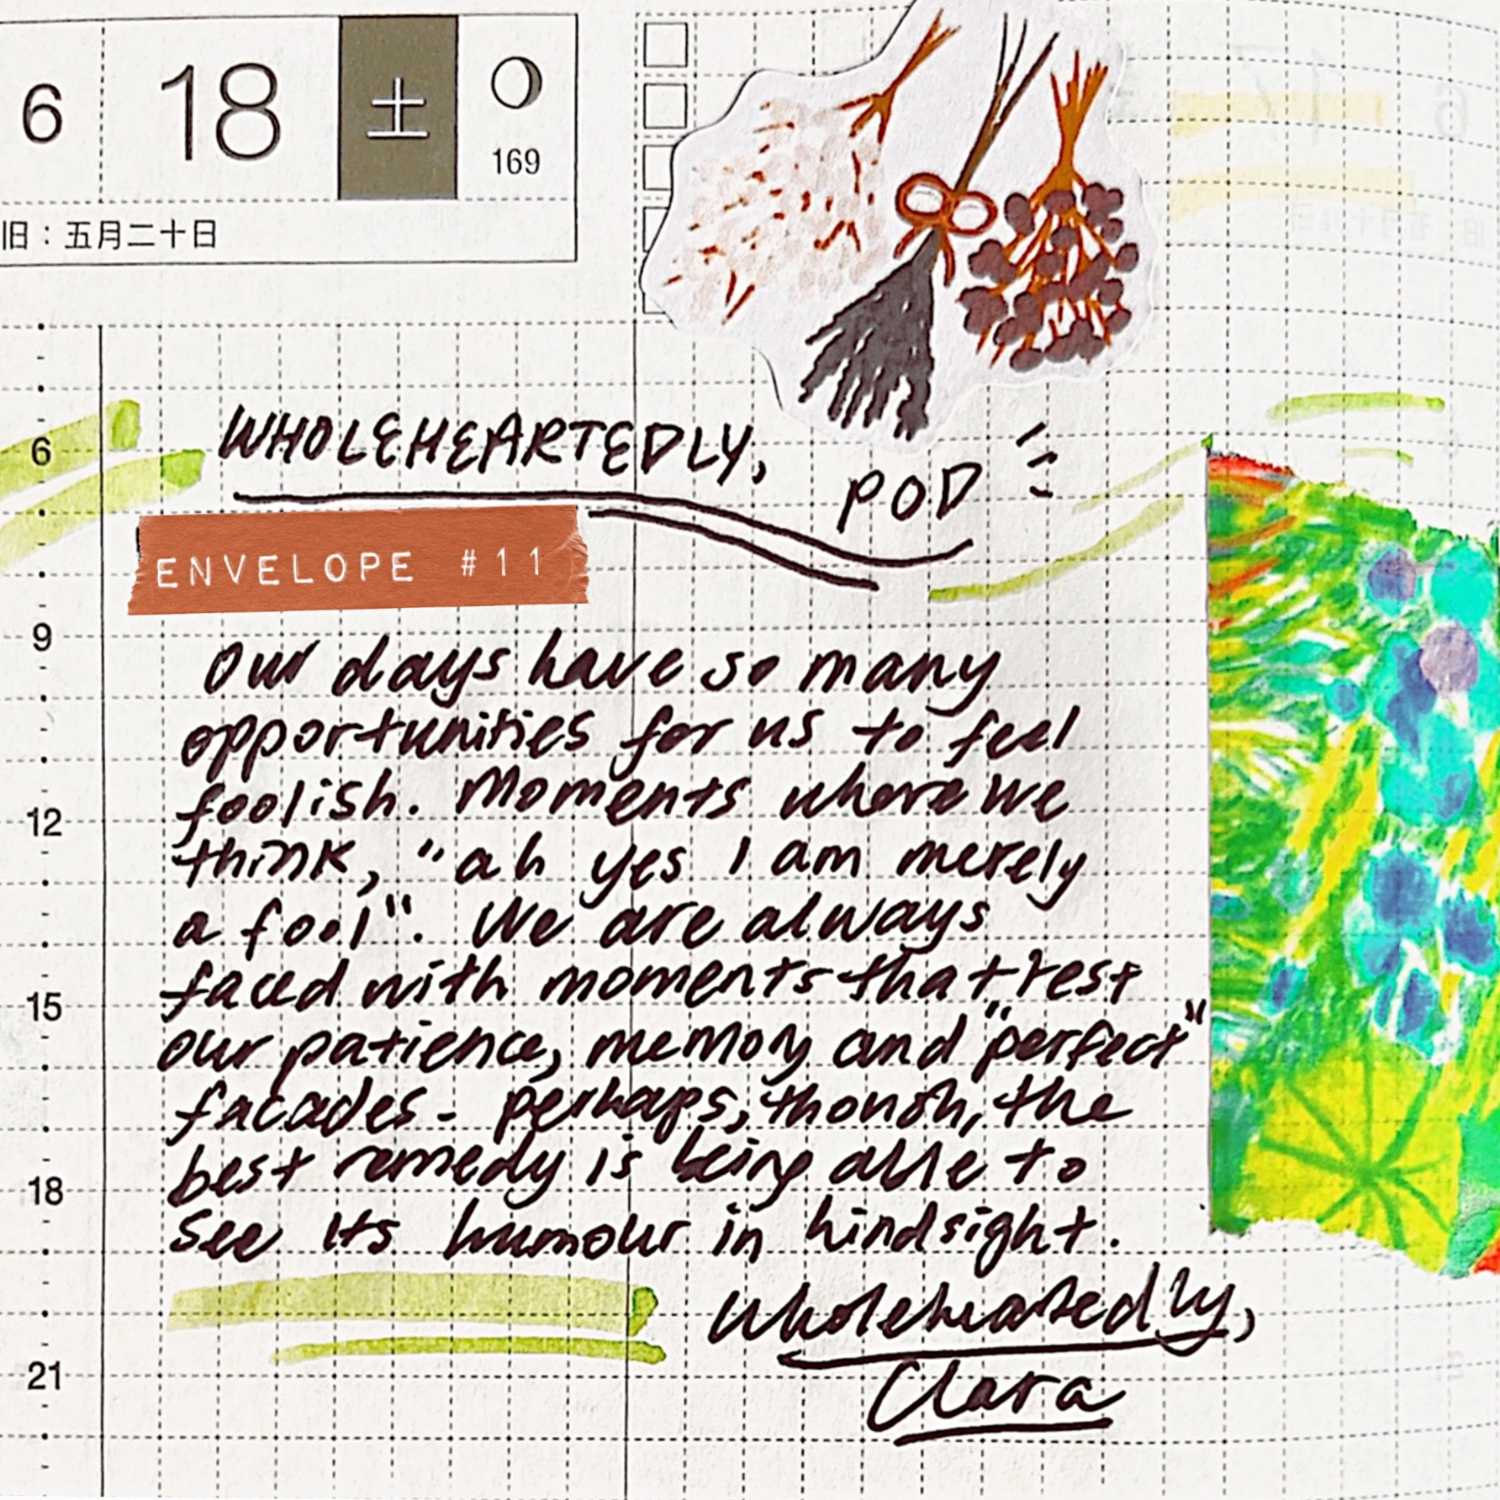 6 18 土 169
旧：五月二十日
WHOLEHEARTEDLY,
POD
ENVELOPE #11
Our days have so many
opportunities for us to feel
foolish. Moments where we
think, "ah yes I am merely
a fool". We are always
faced with moments that test
our patience, memory and "perfect"
facades. Perhaps, though, the
best remedy is being able to
see its humour in hindsight.
Wholeheartedly,
Clara
6
9
12
15
18
21